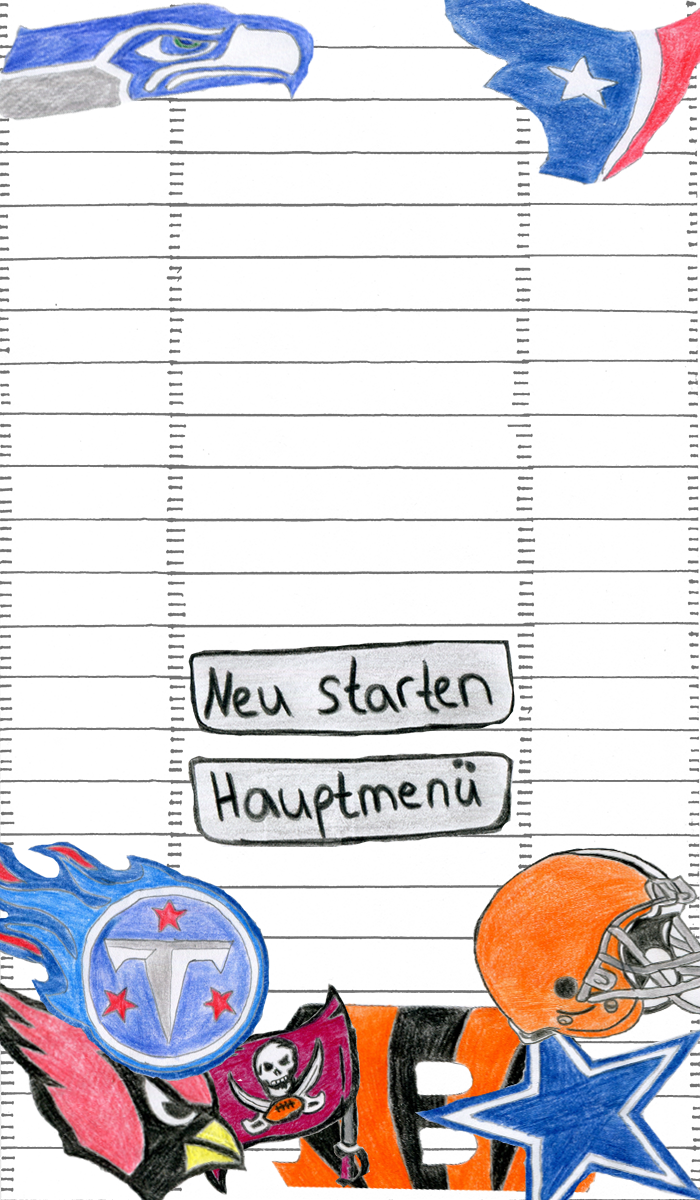 Neu starten
Hauptmenü